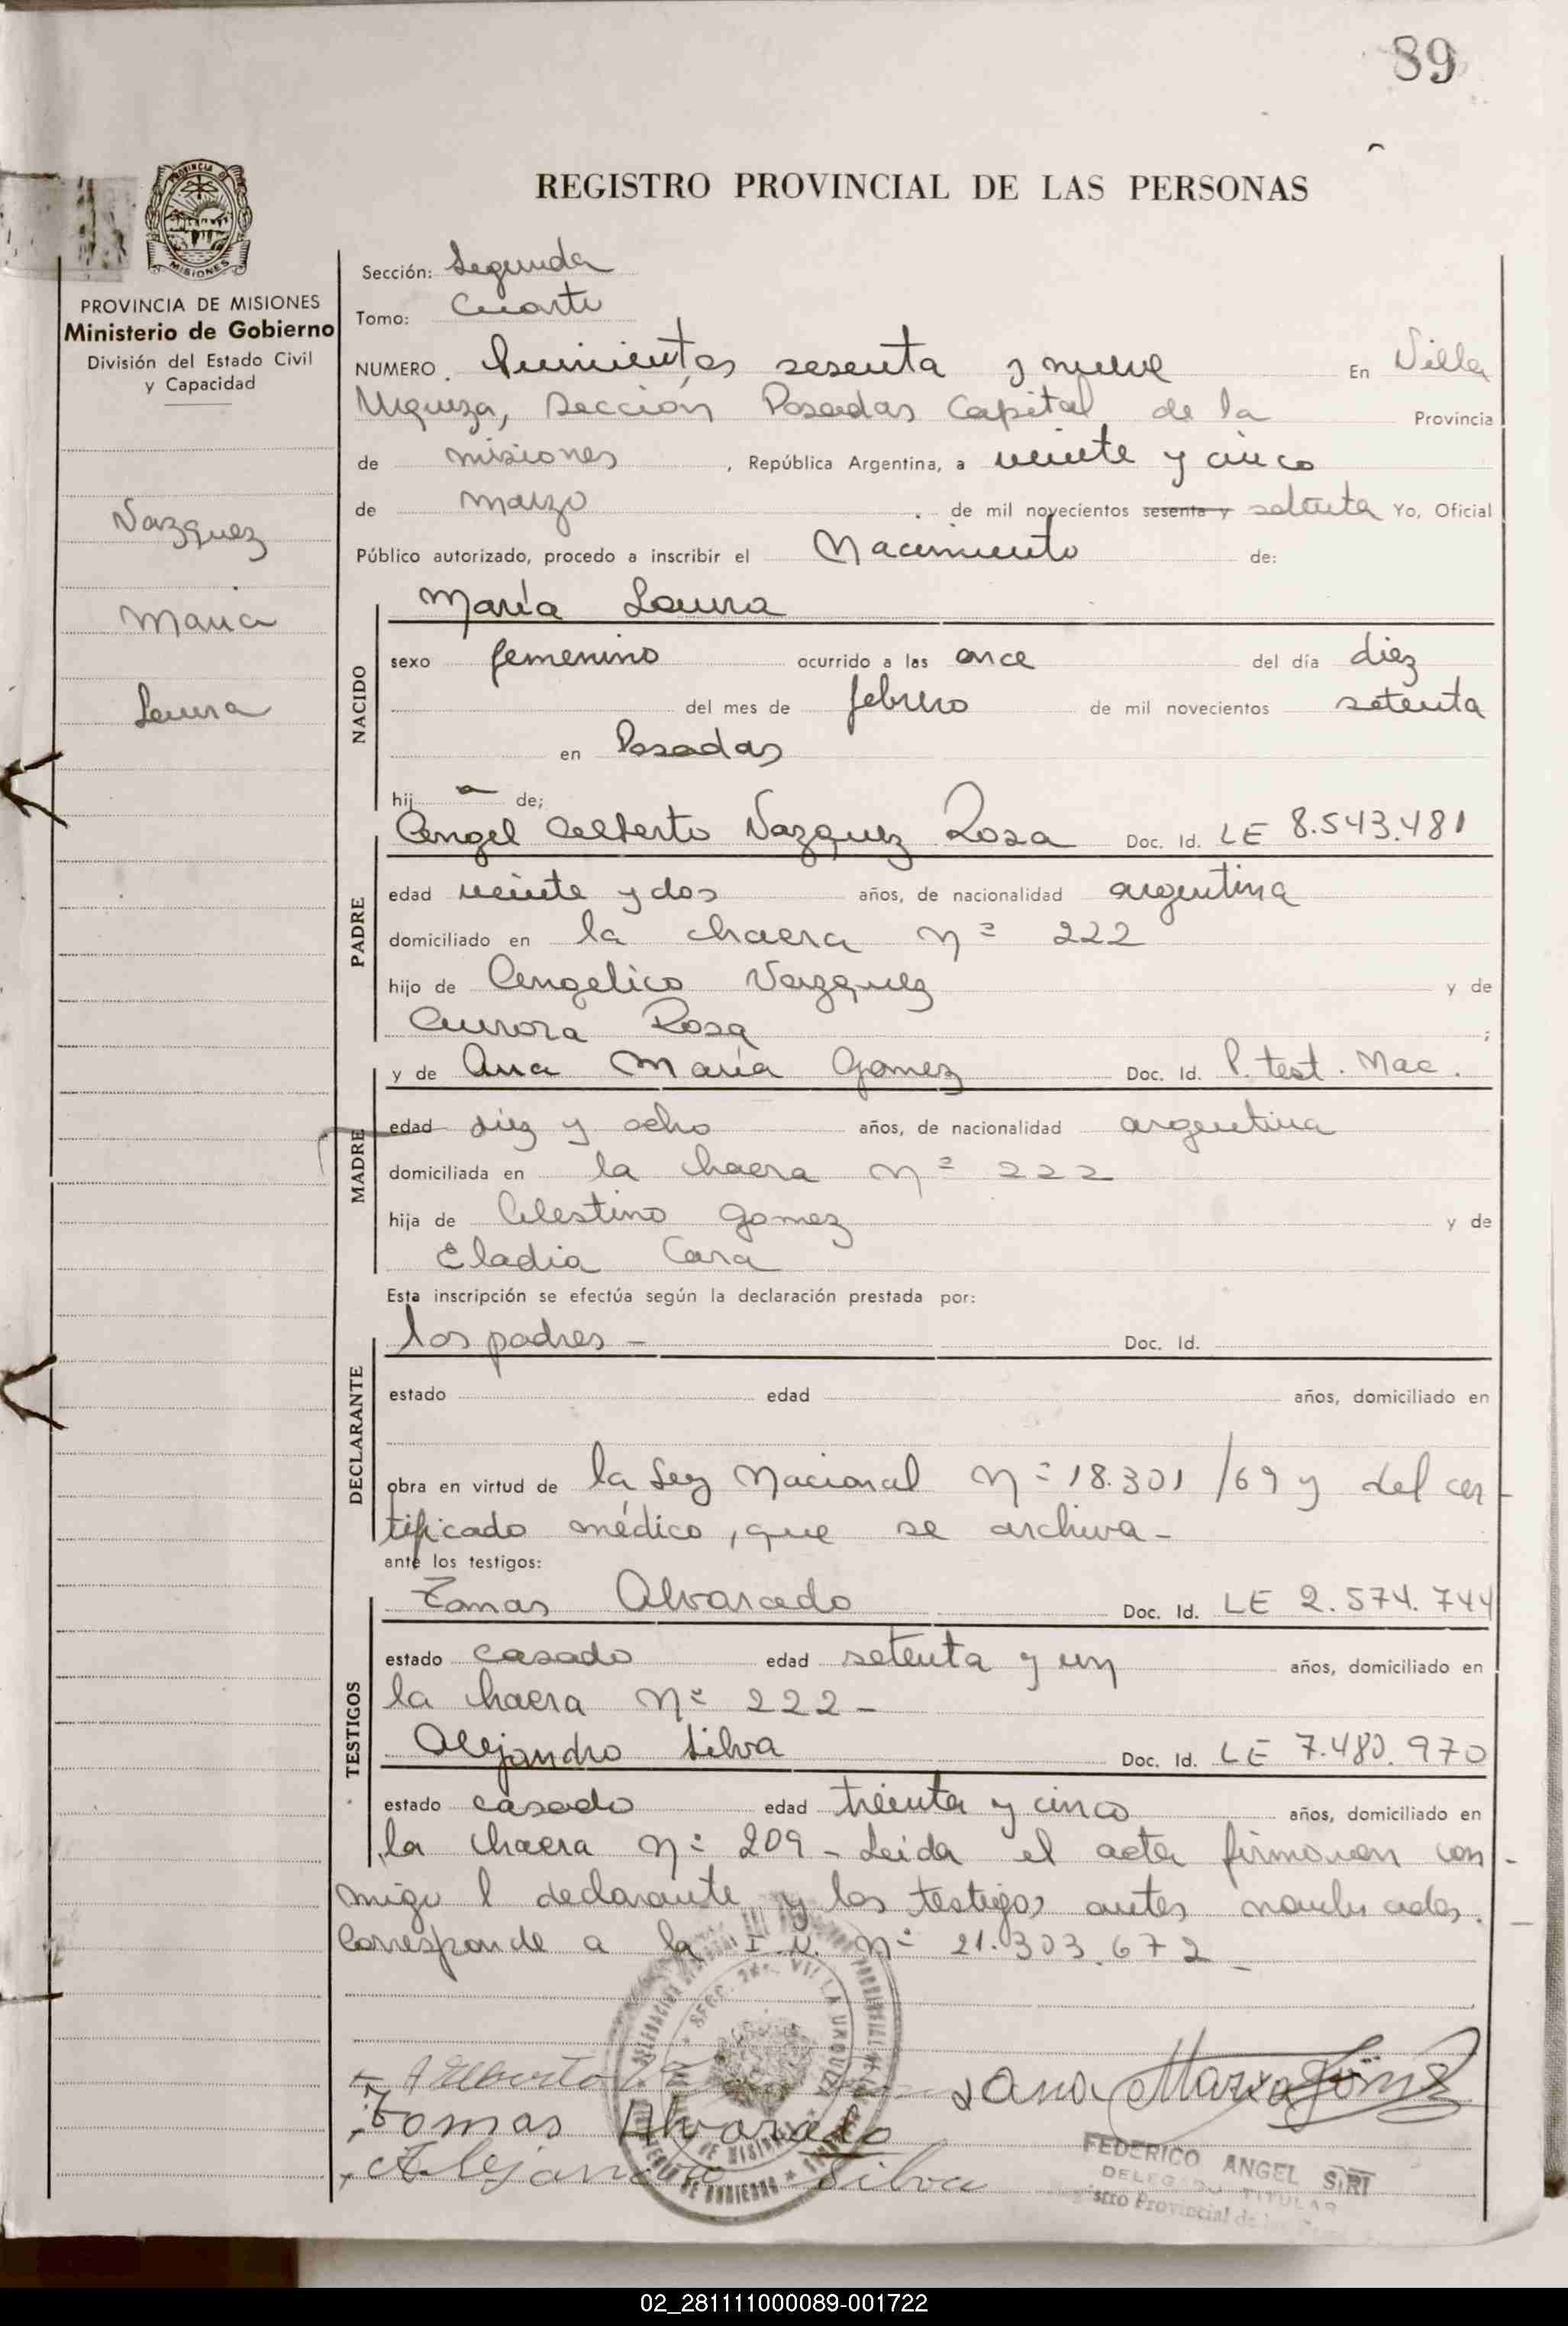 89
REGISTRO PROVINCIAL DE LAS PERSONAS
PROVINCIA DE MISIONES
Ministerio de Gobierno
División del Estado Civil
y Capacidad
Vazquez
Maria
Laura
Sección: Segunda
Tomo: Cuarto
NUMERO Quinientos sesenta y nueve En Villa
Urquiza, Sección Posadas Capital de la Provincia
de misiones, República Argentina, a veinte y cinco
de marzo de mil novecientos sesenta y setenta Yo, Oficial
Público autorizado, procedo a inscribir el Nacimiento de:
María Laura
NACIDO
sexo femenino ocurrido a las once del día diez
del mes de febrero de mil novecientos setenta
en Posadas
hij a de;
Angel Alberto Vazquez Rosa Doc. Id. LE 8.543.481
PADRE
edad veinte y dos años, de nacionalidad argentina
domiciliado en la chacra nº 222
hijo de Angelico Vazquez y de
Aurora Rosa;
y de Ana María Gomez Doc. Id. P. test. Nac.
MADRE
edad diez y ocho años, de nacionalidad argentina
domiciliada en la chacra nº 222
hija de Celestino Gomez y de
Eladia Cara
Esta inscripción se efectúa según la declaración prestada por:
los padres - Doc. Id.
DECLARANTE
estado edad años, domiciliado en
obra en virtud de la Ley Nacional Nº 18.301/69 y del cer
tificado médico, que se archiva -
ante los testigos:
Tomas Alvarado Doc. Id. LE 2.574.744
TESTIGOS
estado casado edad setenta y un años, domiciliado en
la chacra Nº 222 -
Alejandro Silva Doc. Id. LE 7.480.970
estado casado edad treinta y cinco años, domiciliado en
la chacra nº 209 - Leida el acta firmaron con -
migo l declarante y los testigos antes nombrados.
Corresponde a la I.N. nº 21.303.672 -
Alberto
Ana Maria Gómez
Tomas Alvarado
Alejandro Silva
FEDERICO ANGEL SIRI
DELEGADO TITULAR
Registro Provincial de las
02_281111000089-001722